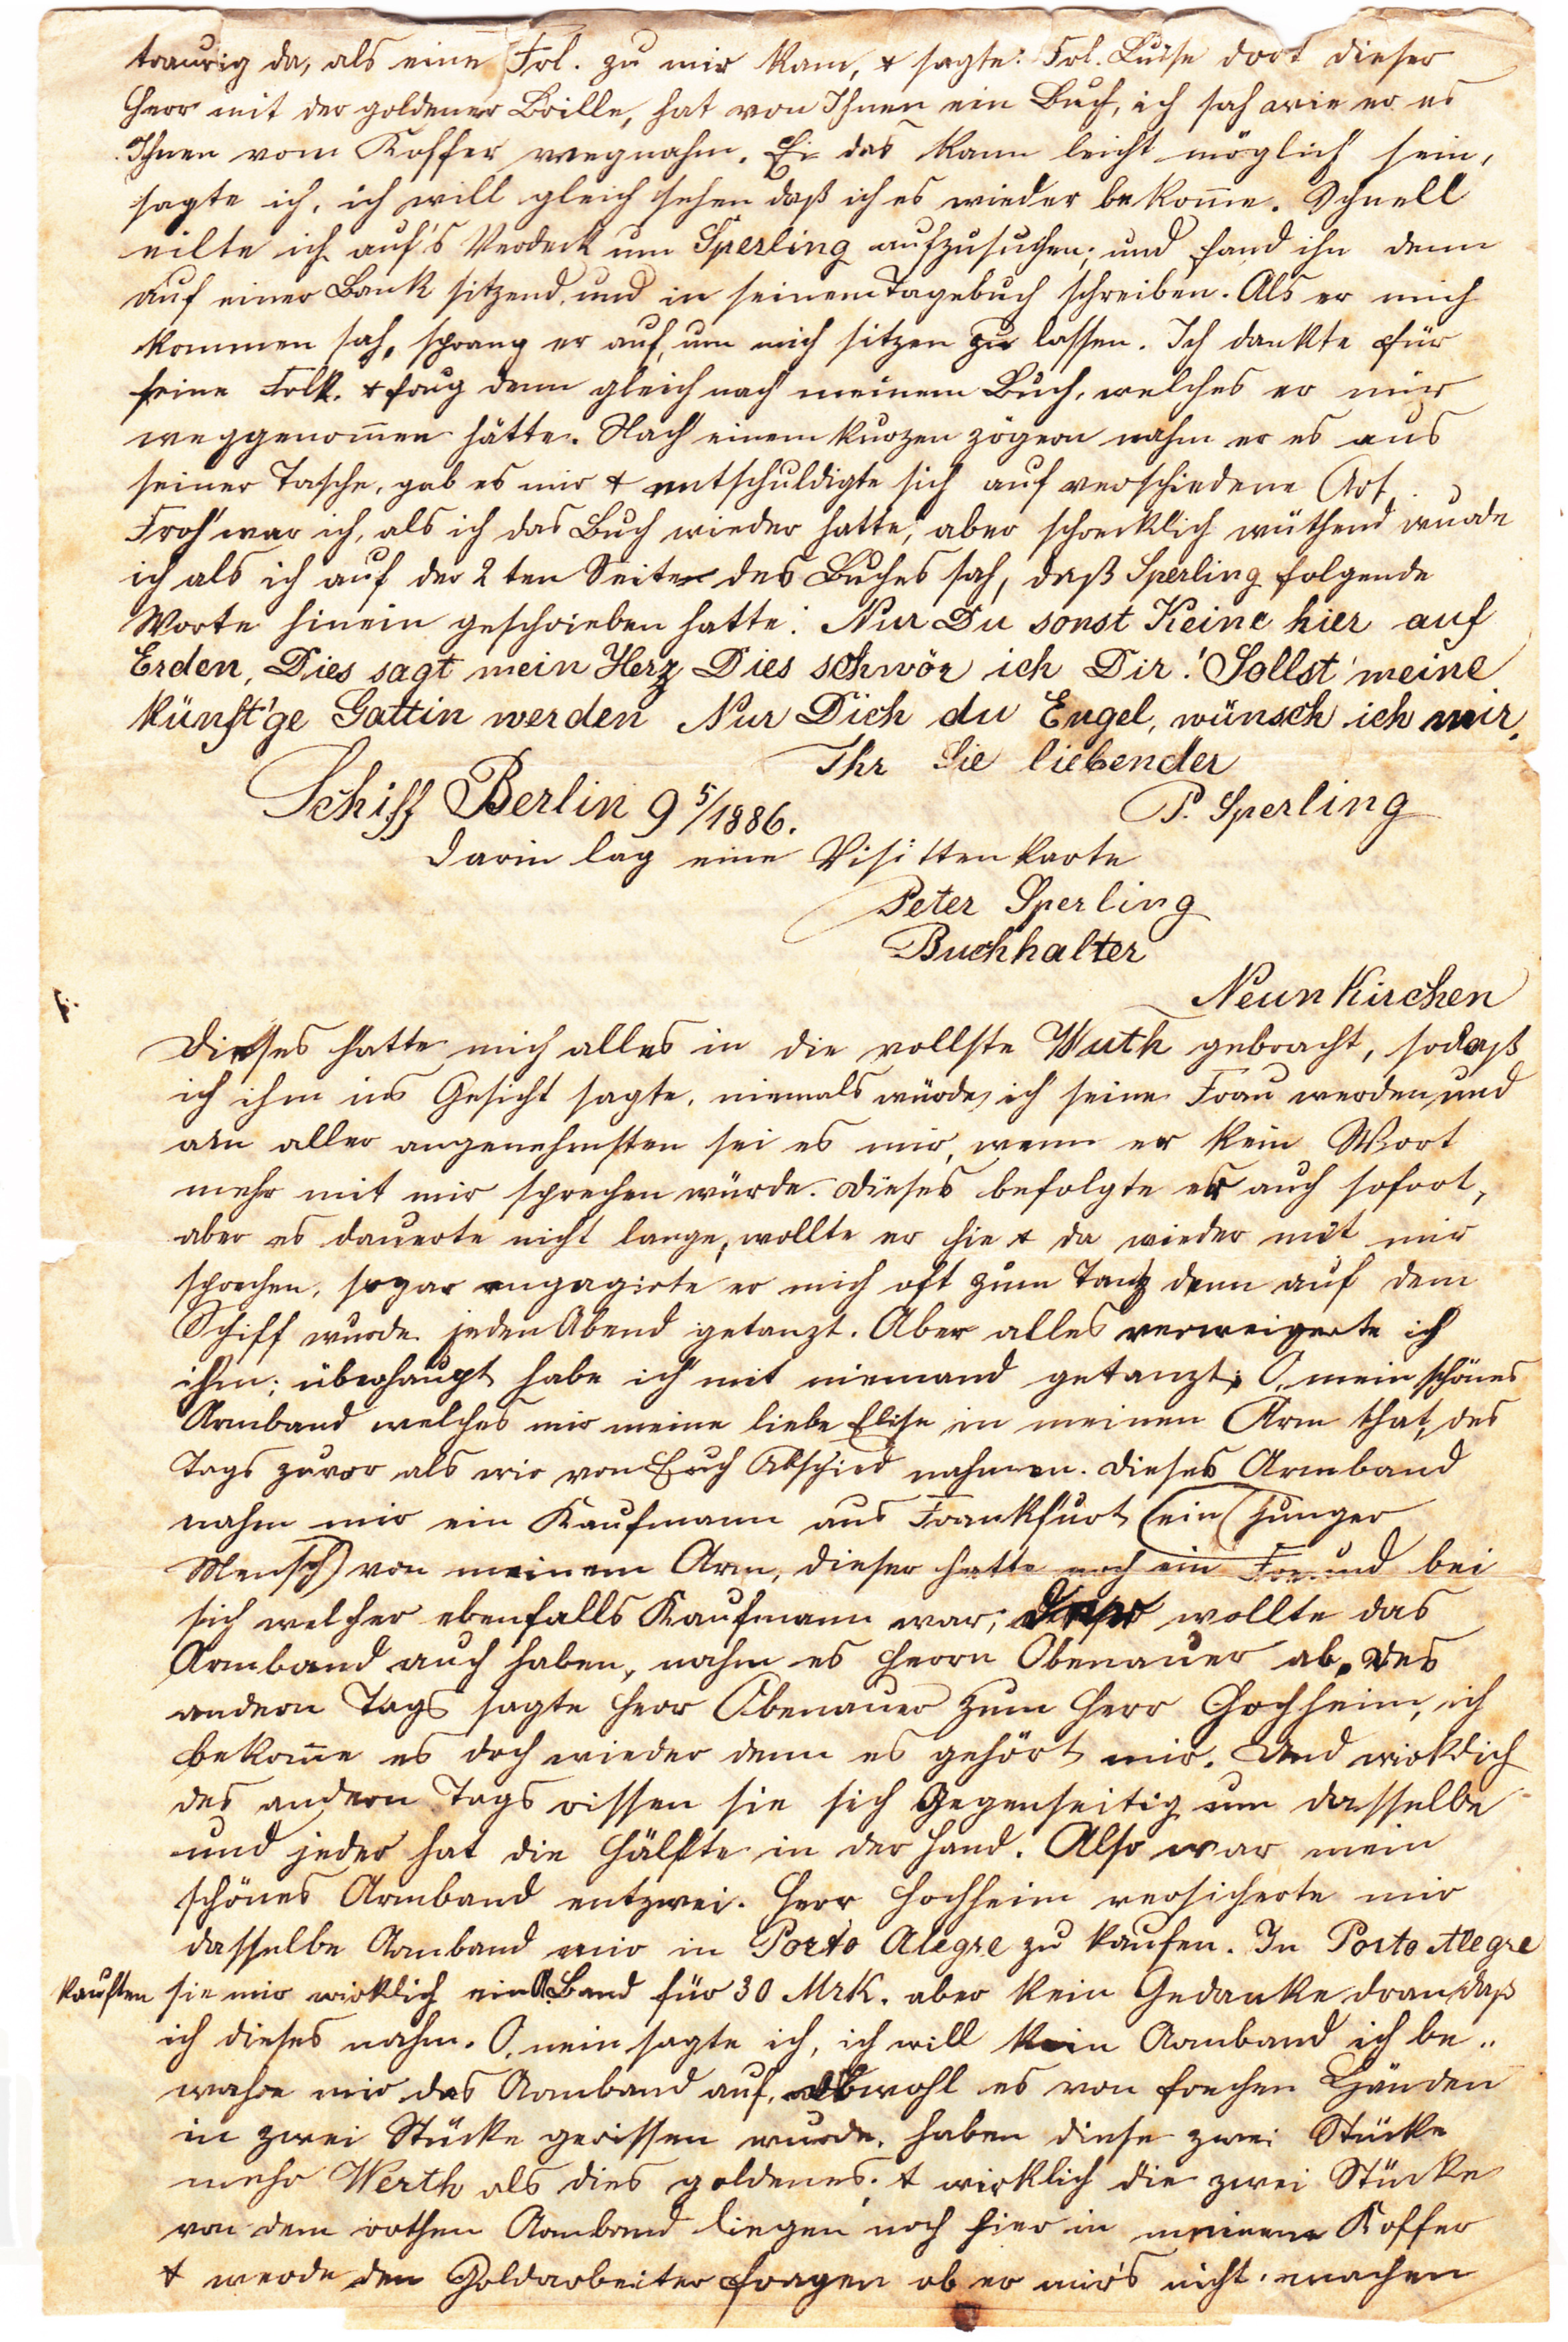 traurig da, als eine Frl. zu mir kam, & sagte: Frl. Luise dort dieser
Herr mit der goldener Brille, hat von Ihnen ein Buch, ich sah wie er es
Ihnen vom Koffer wegnahm. Ei das kann leicht möglich sein,
sagte ich, ich will gleich sehen daß ich es wieder bekom̄e. Schnell
eilte ich auf's Verdeck um Sperling aufzusuchen; und fand ihn denn
auf einer Bank sitzend, und in seinem Tagebuch schreiben. Als er mich
kommen sah, sprang er auf, um mich sitzen zu lassen. Ich dankte für
seine & frug denn gleich nach meinem Buch, welches er mir
weggenom̄en hätte. Nach einem kurzen zögern nahm er es aus
seiner Tasche, gab es mir & entschuldigte sich auf verschiedene Art.
Froh war ich, als ich das Buch wieder hatte, aber schrecklich wüthend wurde
ich als ich auf der 2 ten Seite des Buches sah, daß Sperling folgende
Worte hinein geschrieben hatte: Nur Du sonst Keine hier auf
Erden, Dies sagt mein Herz Dies schwör ich Dir! Sollst meine
künft'ge Gattin werden Nur Dich du Engel, wünsch ich mir.
Ihr Sie liebender
Schiff Berlin 9 5/1886.
P. Sperling
Darin lag eine Visittenkarte
Peter Sperling
Buchhalter
Neunkirchen
Dieses hatte mich alles in die vollste Wuth gebracht, sodaß
ich ihm ins Gesicht sagte, niemals würde ich seine Frau werden, und
am aller angenehmsten sei es mir, wenn er kein Wort
mehr mit mir sprechen würde. Dieses befolgte er auch sofort,
aber es dauerte nicht lange, wollte er hie & da wieder mit mir
sprechen, sogar engagirte er mich oft zum Tanz denn auf dem
Schiff wurde jeden Abend getanzt. Aber alles verweigerte ich
ihm; überhaupt habe ich mit niemand getanzt; O, mein schönes
Armband welches mir meine liebe Elise in meinen Arm that, des
Tags zuvor als wir von Euch Abschied nahmen. Dieses Armband
nahm mir ein Kaufmann aus Frankfurt (ein junger
Mensch) von meinem Arm, dieser hatte noch ein Freund bei
sich welcher ebenfalls Kaufmann war; dieser wollte das
Armband auch haben, nahm es Herrn Obenauer ab. Des
andern Tags sagte Herr Obenauer zum Herr Hochheim, ich
bekom̄e es doch wieder denn es gehört mir. Und wirklich
des andern Tags rissen sie sich gegenseitig um dasselbe
und jeder hat die Hälfte in der Hand. Also war mein
schönes Armband entzwei. Herr Hochheim versicherte mir
dasselbe Armband mir in Porto Alegre zu kaufen. In Porto Alegre
kauften sie mir wirklich ein Band für 30 Mrk. aber kein Gedanke dran daß
ich dieses nahm. O, nein sagte ich, ich will kein Armband ich be„
wahre mir das Armband auf, obwohl es von frechen Händen
in zwei Stücke gerissen wurde, haben diese zwei Stücke
mehr Werth als dies goldenes; & wirklich die zwei Stücke
von dem rothen Armband liegen noch hier in meinem Koffer
& werde den Goldarbeiter fragen ob er mir's nicht machen